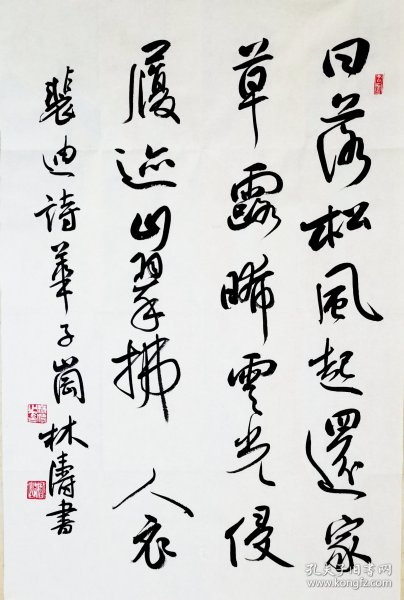 日落松风起還家
草露晞雲光侵
履迹山翠拂人衣
裴迪詩華子崗林濤書
孔夫子旧书网
www.kongfz.com